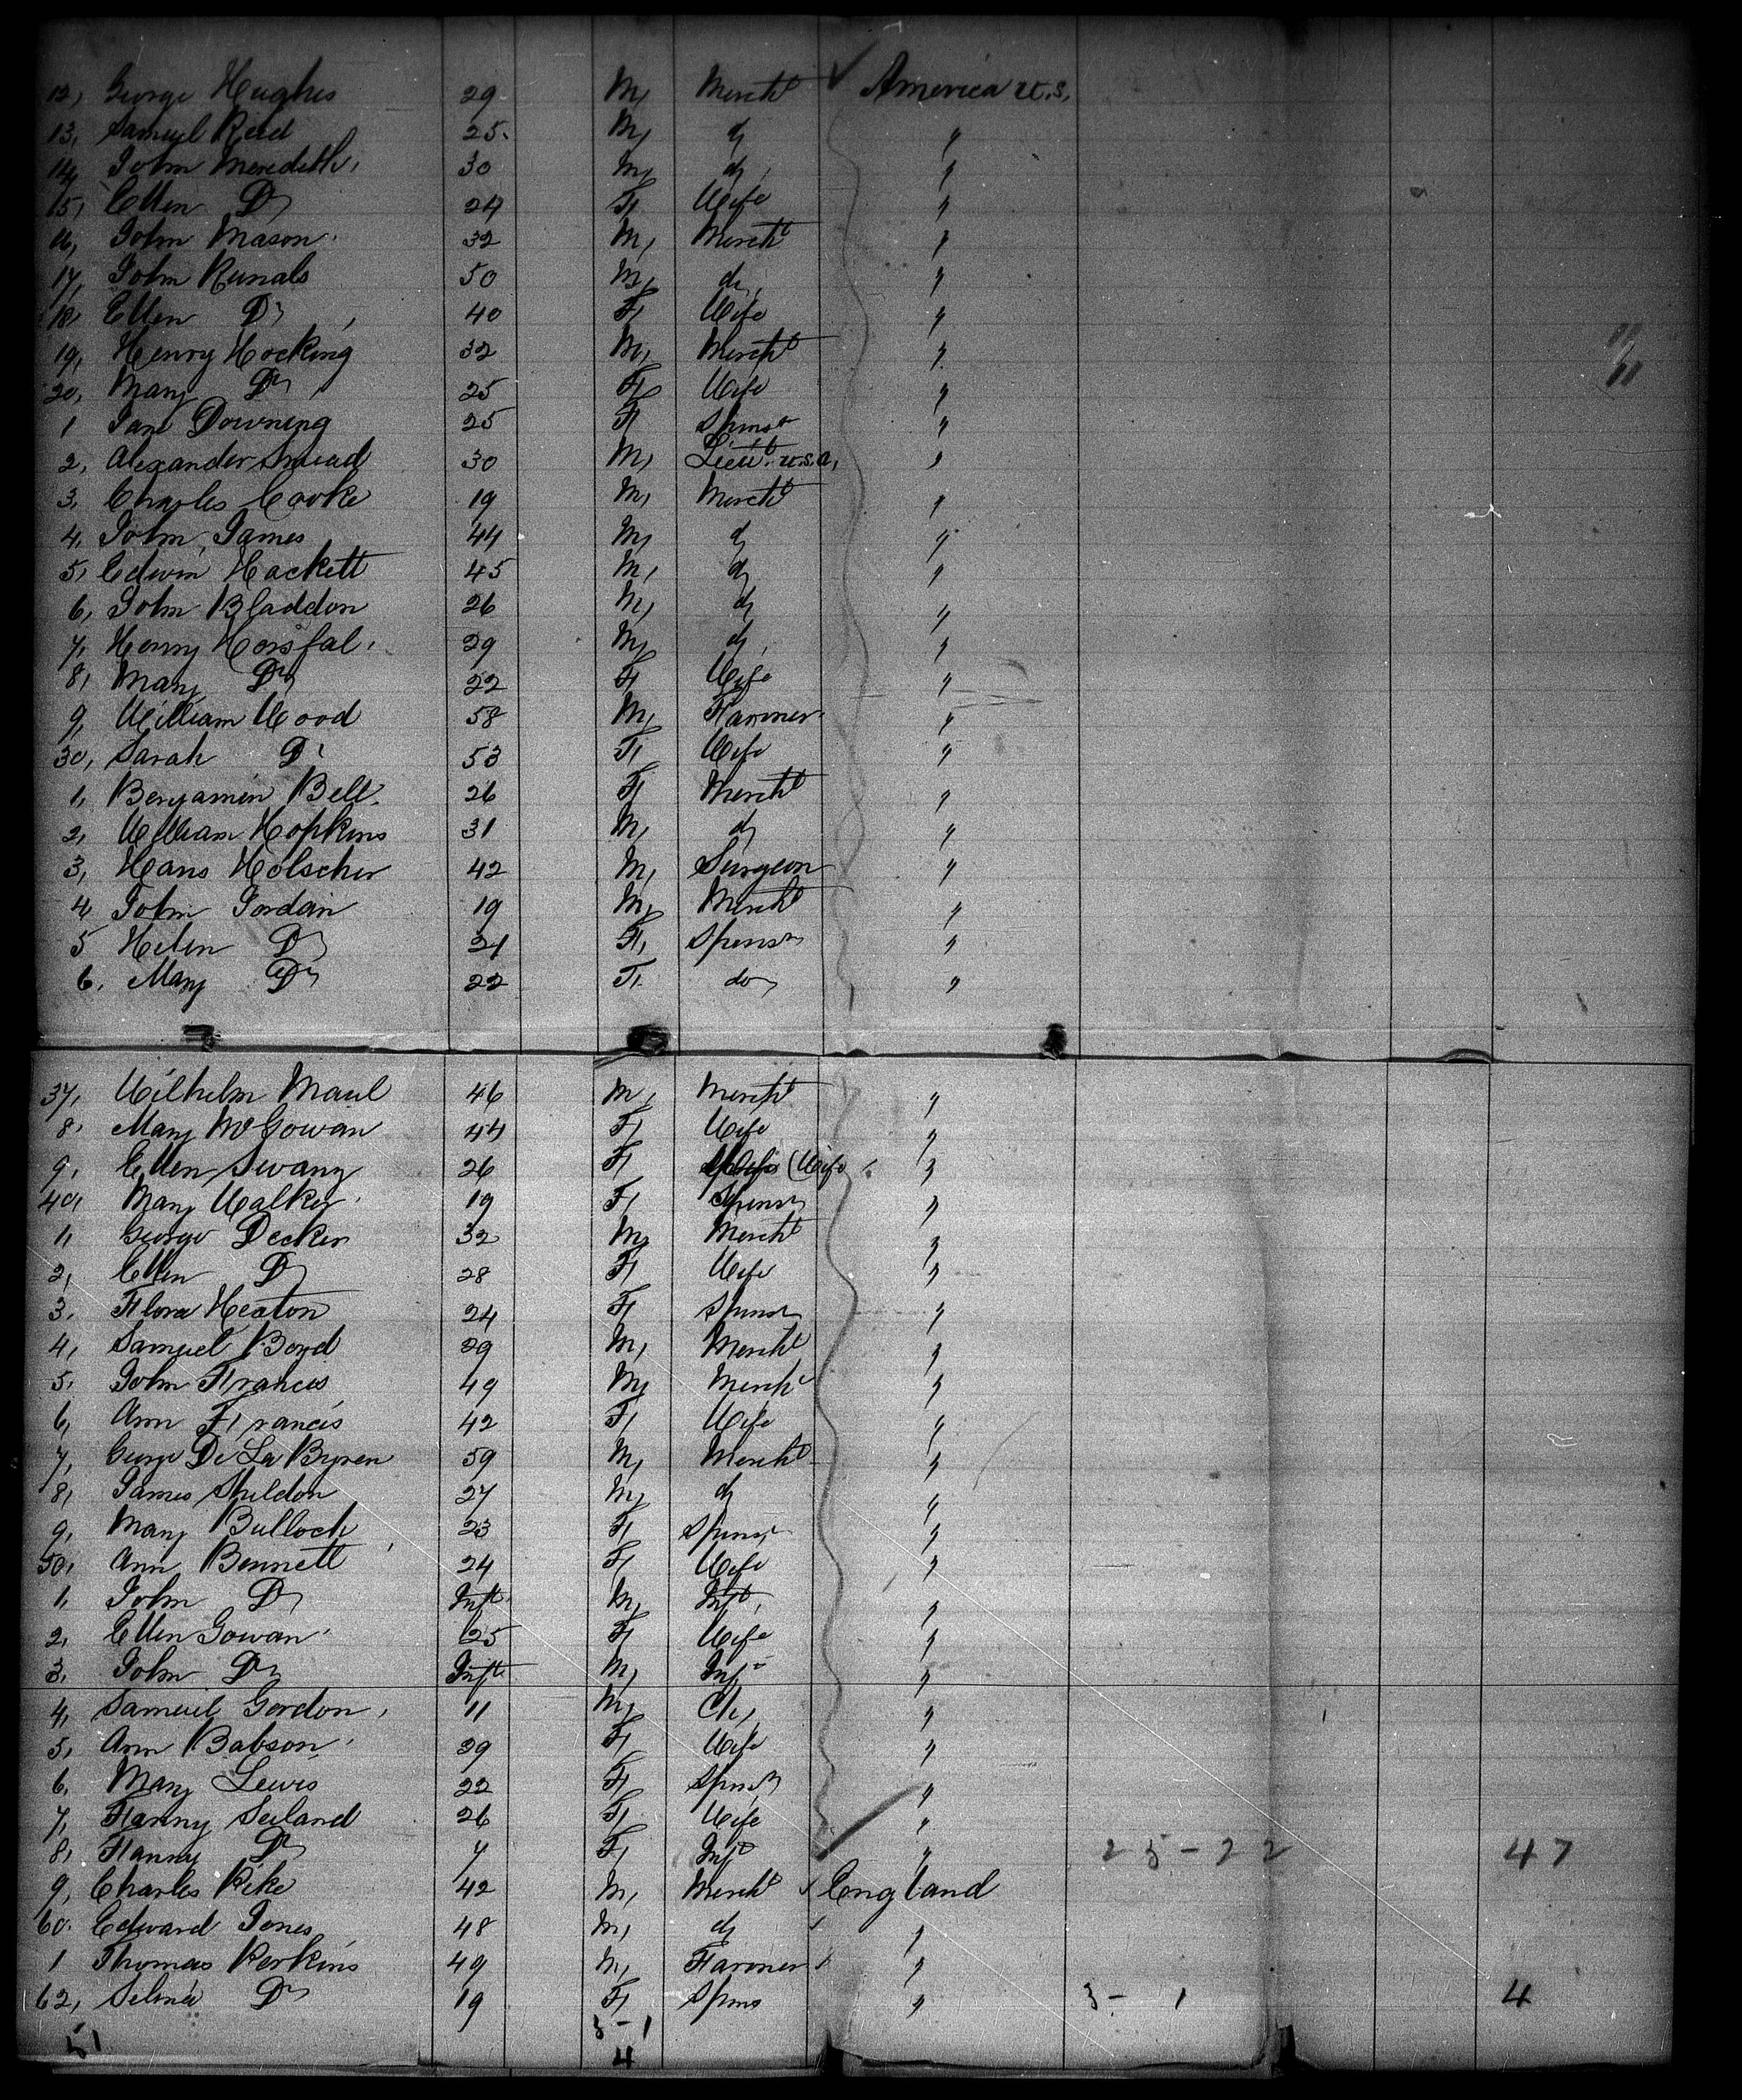 12, George Hughes 29 M, Mercht America U.S.
13, Samuel Reid 25. M, do "
14, John Meredith, 30 M, do, "
15, Ellen Do 24 F, Wife "
16, John Mason 32 M, Mercht "
17, John Runals 50 M, do, "
18, Ellen Do 40 F, Wife "
19, Henry Hocking 32 M, Mercht "
20, Mary Do 25 F, Wife "
1 Jane Downing 25 F, Spinsr "
2, Alexander Smead 30 M, Lieut. U.S.A, "
3, Charles Cooke 19 M, Mercht "
4, John James 44 M, do "
5, Edwin Hackett 45 M, do "
6, John Bladdon 26 M, do "
7, Henry Horsfal, 29 M, do, "
8, Mary Do 22 F, Wife "
9, William Wood 58 M, Farmer "
30, Sarah Do 53 F, Wife "
1, Benjamin Bell 26 F, Mercht "
2, William Hopkins 31 M, do "
3, Hans Holscher 42 M, Surgeon "
4, John Jordan 19 M, Mercht "
5 Helen Do 21 F, Spinsr "
6. Mary Do 22 F. do "
37, Wilhelm Maul 46 M, Mercht "
8, Mary McGowan 44 F, Wife "
9, Ellen Swany 26 F, (Wife "
40, Mary Walker 19 F, Spinsr "
1, George Decker 32 M, Mercht "
2, Ellen Do 28 F, Wife "
3, Flora Heaton 24 F, Spinsr "
4, Samuel Boyd 29 M, Mercht "
5, John Francis 49 M, Mercht "
6, Ann Francis 42 F, Wife "
7, George De La Byren 59 M, Mercht "
8, James Sheldon 27 M, do "
9, Mary Bulloch 23 F, Spinsr "
50, Ann Bennett 24 F, Wife "
1, John Do Inft. M, Inft, "
2, Ellen Gowan 25 F, Wife "
3, John Do Inft M, Inft "
4, Samuel Gordon, 11 M, Ch, "
5, Ann Babson 29 F, Wife "
6, Mary Lewis 22 F, Spinsr "
7, Fanny Seiland 26 F, Wife "
8, Fanny Do 7 F, Inft " 25-22 47
9, Charles Pike 42 M, Mercht England
60. Edward Jones 48 M, do "
1 Thomas Perkins 49 M, Farmer "
62, Selina Do 19 F, Spins " 3-1 4
51 3-1
4